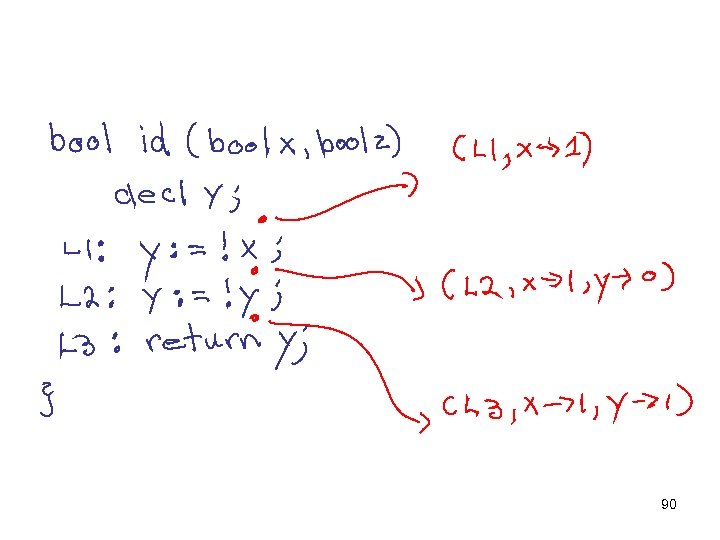 bool id (bool x, bool z)
decl y;
L1: y := !x ;
L2: y := !y ;
L3 : return y;
}
(L1, x→1)
(L2, x→1, y→0)
(L3, x→1, y→1)
90